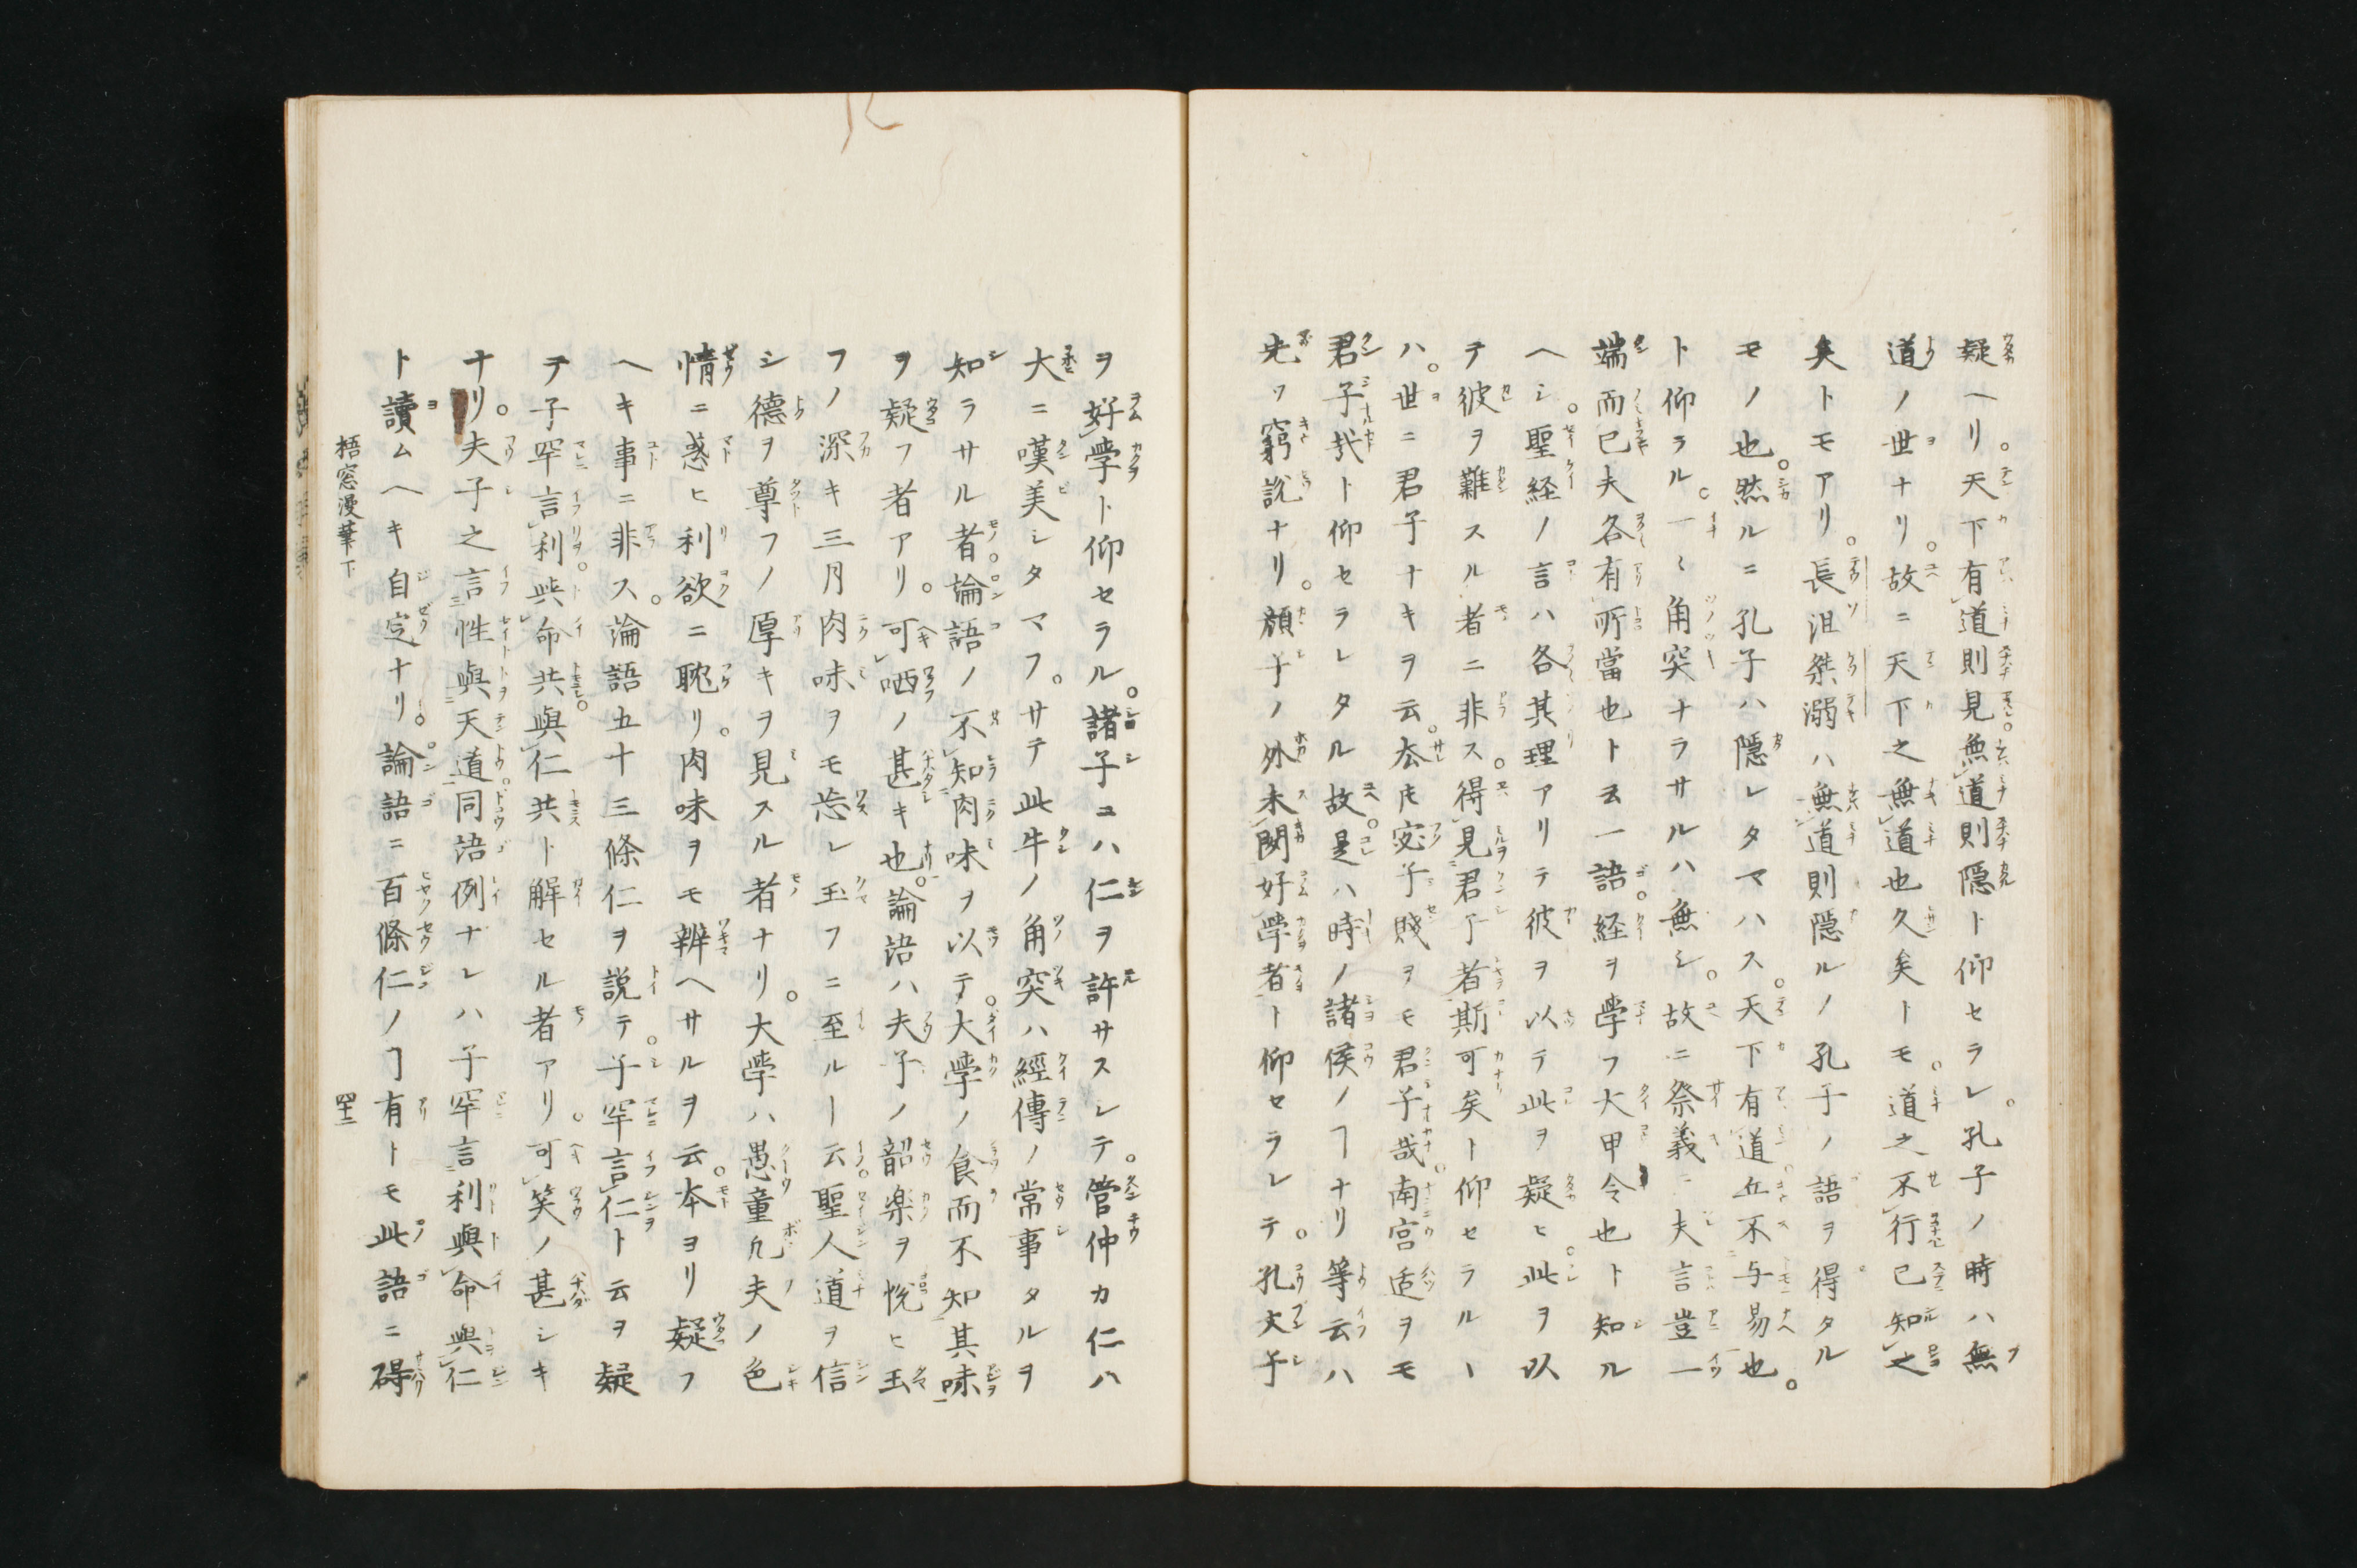 疑ヘリ。天下有道則見無道則隠ト仰セラレ。孔子ノ時ハ無
道ノ世ナリ。故ニ天下之無道也久矣トモ。道之不行已知之
矣トモアリ。長沮桀溺ハ無道則隠ルノ孔子ノ語ヲ得タル
モノ也。然ルニ孔子ハ隠レタマハス。天下有道丘不与易也。
ト仰ラル。一〻角突ナラサルハ無シ。故ニ祭義ニ夫言豈一
端而已夫各有所當也ト云一語。経ヲ學フ大甲令也ト知ル
ヘシ。聖経ノ言ハ各其理アリテ彼ヲ以テ此ヲ疑ヒ。此ヲ以
テ彼ヲ難スル者ニ非ス。得見君子者斯可矣ト仰セラルヽ
ハ。世ニ君子ナキヲ云。去𪜈宓子賤ヲモ君子哉。南宮适ヲモ
君子哉ト仰セラレタル故。是ハ時ノ諸侯ノヿナリ等云ハ
先ツ窮説ナリ。顔子ノ外未聞好學者ト仰セラレテ。孔丈子
ヲ好學ト仰セラル。諸子ユハ仁ヲ許サスシテ。管仲カ仁ハ
大ニ嘆美シタマフ。サテ此牛ノ角突ハ經傳ノ常事タルヲ
知ラサル者。論語ノ不知肉味ヲ以テ。大學ノ食而不知其味
ヲ疑フ者アリ。可哂ノ甚キ也。論語ハ夫子ノ韶楽ヲ悦ヒ玉
フノ深キ三月肉味ヲモ忘レ玉フニ至ルヿ云。聖人道ヲ信
シ德ヲ尊フノ厚キヲ見スル者ナリ。大學ハ愚童凡夫ノ色
情ニ惑ヒ利欲ニ耽リ。肉味ヲモ辨ヘサルヲ云。本ヨリ疑フ
ヘキ事ニ非ス。論語五十三條仁ヲ説テ。子罕言仁ト云ヲ疑
テ子罕言利。與命共。與仁共ト解セル者アリ。可笑ノ甚シキ
ナリ。夫子之言性與天道。同語例ナレハ子罕言利與命與仁
ト讀ムヘキ自定ナリ。論語ニ百條仁ノヿ有トモ此語ニ碍
梧窓漫筆下
四十二